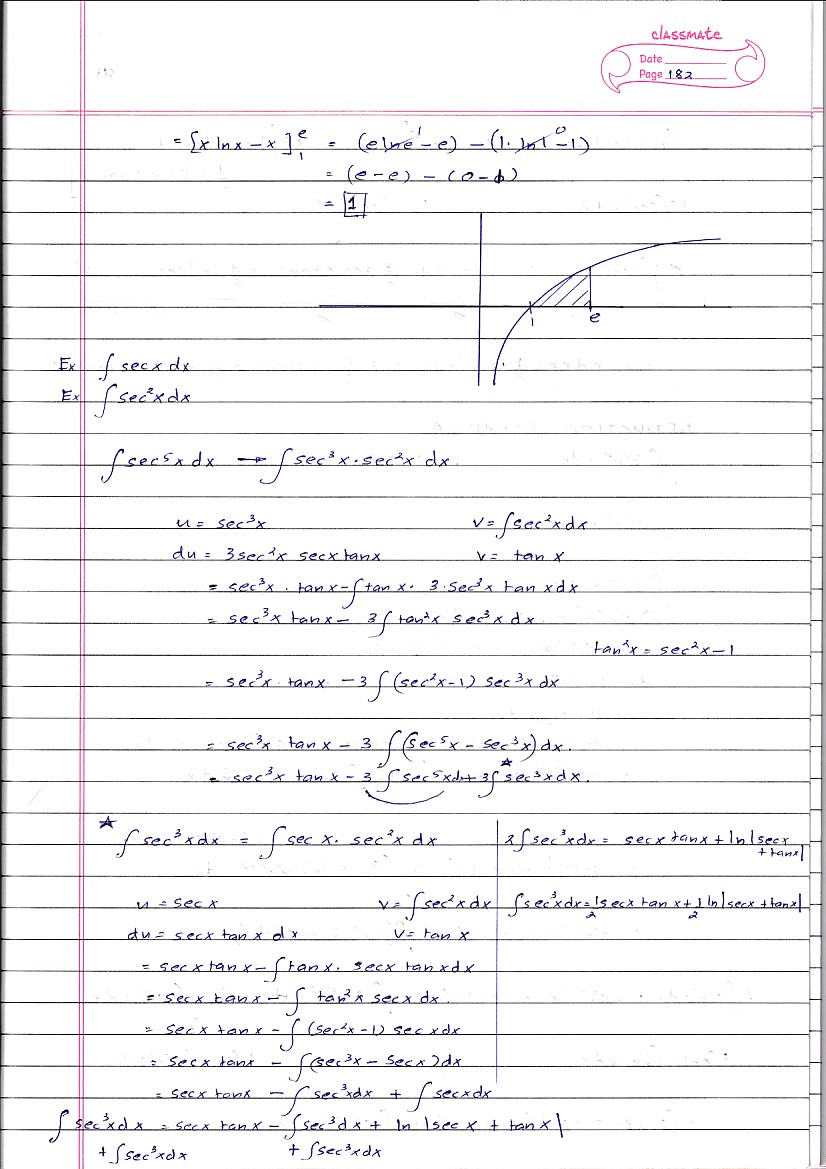 classmate
Date
Page 182
= [x ln x – x]₁ᵉ = (e ln e 1 – e) – (1. ln 1 0 – 1)
= (e – e) – (0 – 1)
= 1
1 e
Ex ∫ sec x dx
Ex ∫ sec²x dx
∫ sec⁵x dx → ∫ sec³x · sec²x dx.
u = sec³x v = ∫ sec²x dx
du = 3 sec²x secx tanx v = tan x
= sec³x . tan x – ∫ tan x · 3·sec³x tan x dx
= sec³x tan x – 3 ∫ tan²x sec³x dx
tan²x = sec²x – 1
= sec³x tanx – 3 ∫ (sec²x – 1) sec³x dx
= sec³x tan x – 3 ∫ (sec⁵x – sec³x) dx.
= sec³x tan x – 3 ∫ sec⁵x dx + 3 ∫ ★ sec³x dx.
★ ∫ sec³x dx = ∫ sec x. sec²x dx
u = sec x v = ∫ sec²x dx
du = secx tan x dx v = tan x
= secx tan x – ∫ tan x. secx tan x dx
= secx tan x – ∫ tan²x secx dx.
= secx tanx – ∫ (sec²x – 1) sec x dx
= secx tanx – ∫ (sec³x – secx) dx
= secx tanx – ∫ sec³x dx + ∫ secx dx
∫ sec³x dx = secx tan x – ∫ sec³ dx + ln |sec x + tan x|
+ ∫ sec³x dx + ∫ sec³x dx
2 ∫ sec³x dx = secx tan x + ln |secx
+ tanx|
∫ sec³x dx = 1/2 secx tan x + 1/2 ln |secx + tanx|